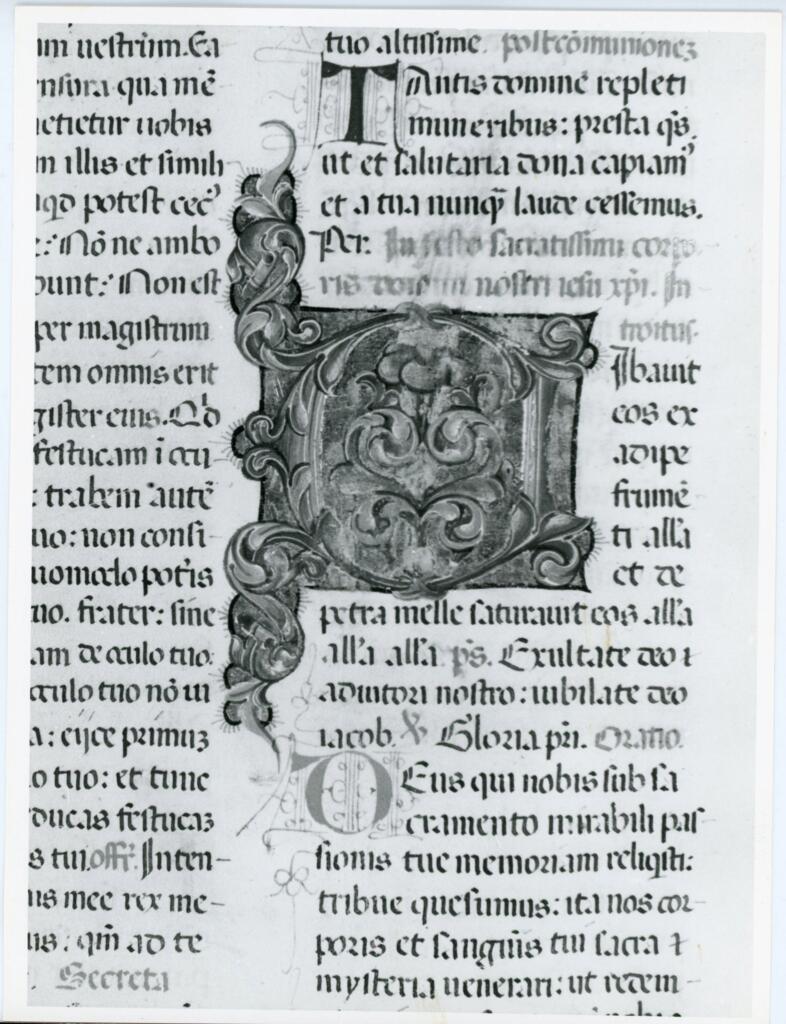 um uestrum. Ea
nsura qua mē
metietur uobis
m illis et simili
qd potest cec9
e: Nō ne ambo
dunt: Non est
per magistrum
tem omnis erit
gister eius. Qd
festucam ī ocu
: trabem autē
uo: non consi-
uomodo potes
tuo. frater: sine
am de oculo tuo.
oculo tuo nō ui
a: eijce primuz
o tuo: et tunc
ducas festucaz
s tui. offr. Inten-
nis mee rex me-
us. qm̄ ad te
Secreta
tuo altissime. postcōmuniones
TAntis domine repleti
muneribus: presta qs.
ut et salutaria dona capiam9
et a tua nunq̄ laude cessemus.
Per. In festo sacratissimi corpo
ris domini nostri iesu xpi. In
troitus.
CIbauit
eos ex
adipe
frumē
ti alla
et de
petra melle saturauit eos alla
alla alla ps. Exultate deo ⁊
adiutori nostro: iubilate deo
iacob. ℣ Gloria pri. Oratio.
DEus qui nobis sub sa
cramento mirabili pas
sionis tue memoriam reliqsti:
tribue quesumus: ita nos cor-
poris et sanguis tui sacra ⁊
mysteria uenerari: ut redem-